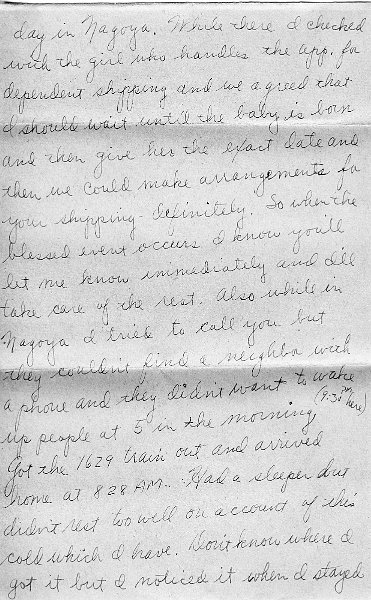 day in Nagoya. While there I checked
with the girl who handles the app. for
dependent shipping and we agreed that
I should wait until the baby is born
and then give her the exact date and
then we could make arrangements for
your shipping definitely. So when the
blessed event occurs I know you'll
let me know immediately and I'll
take care of the rest. Also while in
Nagoya I tried to call you but
they couldn't find a neighbor with
a phone and they didn't want to wake
up people at 5 in the morning (9:30 PM here)
Got the 1629 train out and arrived
home at 828 AM. Had a sleeper but
didn't rest too well on account of this
cold which I have. Don't know where I
got it but I noticed it when I stayed